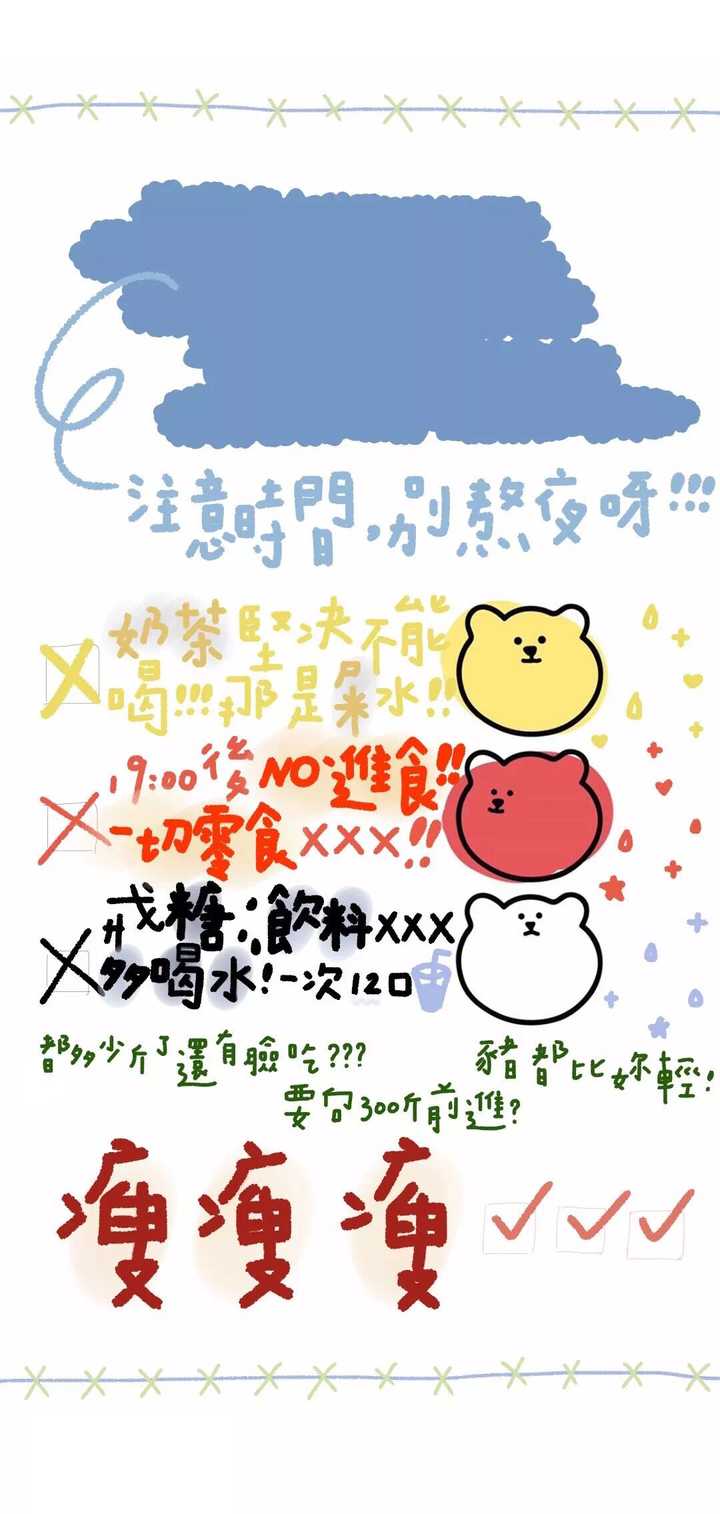 注意時間,別熬夜呀!!!
奶茶堅决不能
喝!!!那是屎水!!
19:00後NO進食!!
一切零食XXX!!
戒糖;飲料XXX
多喝水!一次12口
都多少斤了還有臉吃???
豬都比妳輕!
要向300斤前進?
瘦瘦瘦